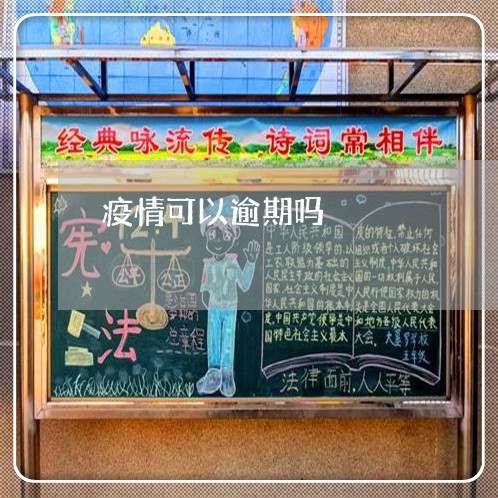 经典咏流传 诗词常相伴
疫情可以逾期吗
宪法
12.4
公平 公正
总章程
中华人民共和国
是工人阶级领导的,以
工农联盟为基础的
人民民主专政的社会主义
国家,社会主义制度是中
华人民共和国的根本制
度,中国共产党领导是中
国特色社会主义最本
质的特征,禁止任何
组织或者个人破坏社会
主义制度,中华人民共和
国的一切权利属于人民,
人民行使国家权力的机
关是全国人民代表大会
和地方各级人民代表
大会。
五年级
法律面前,人人平等